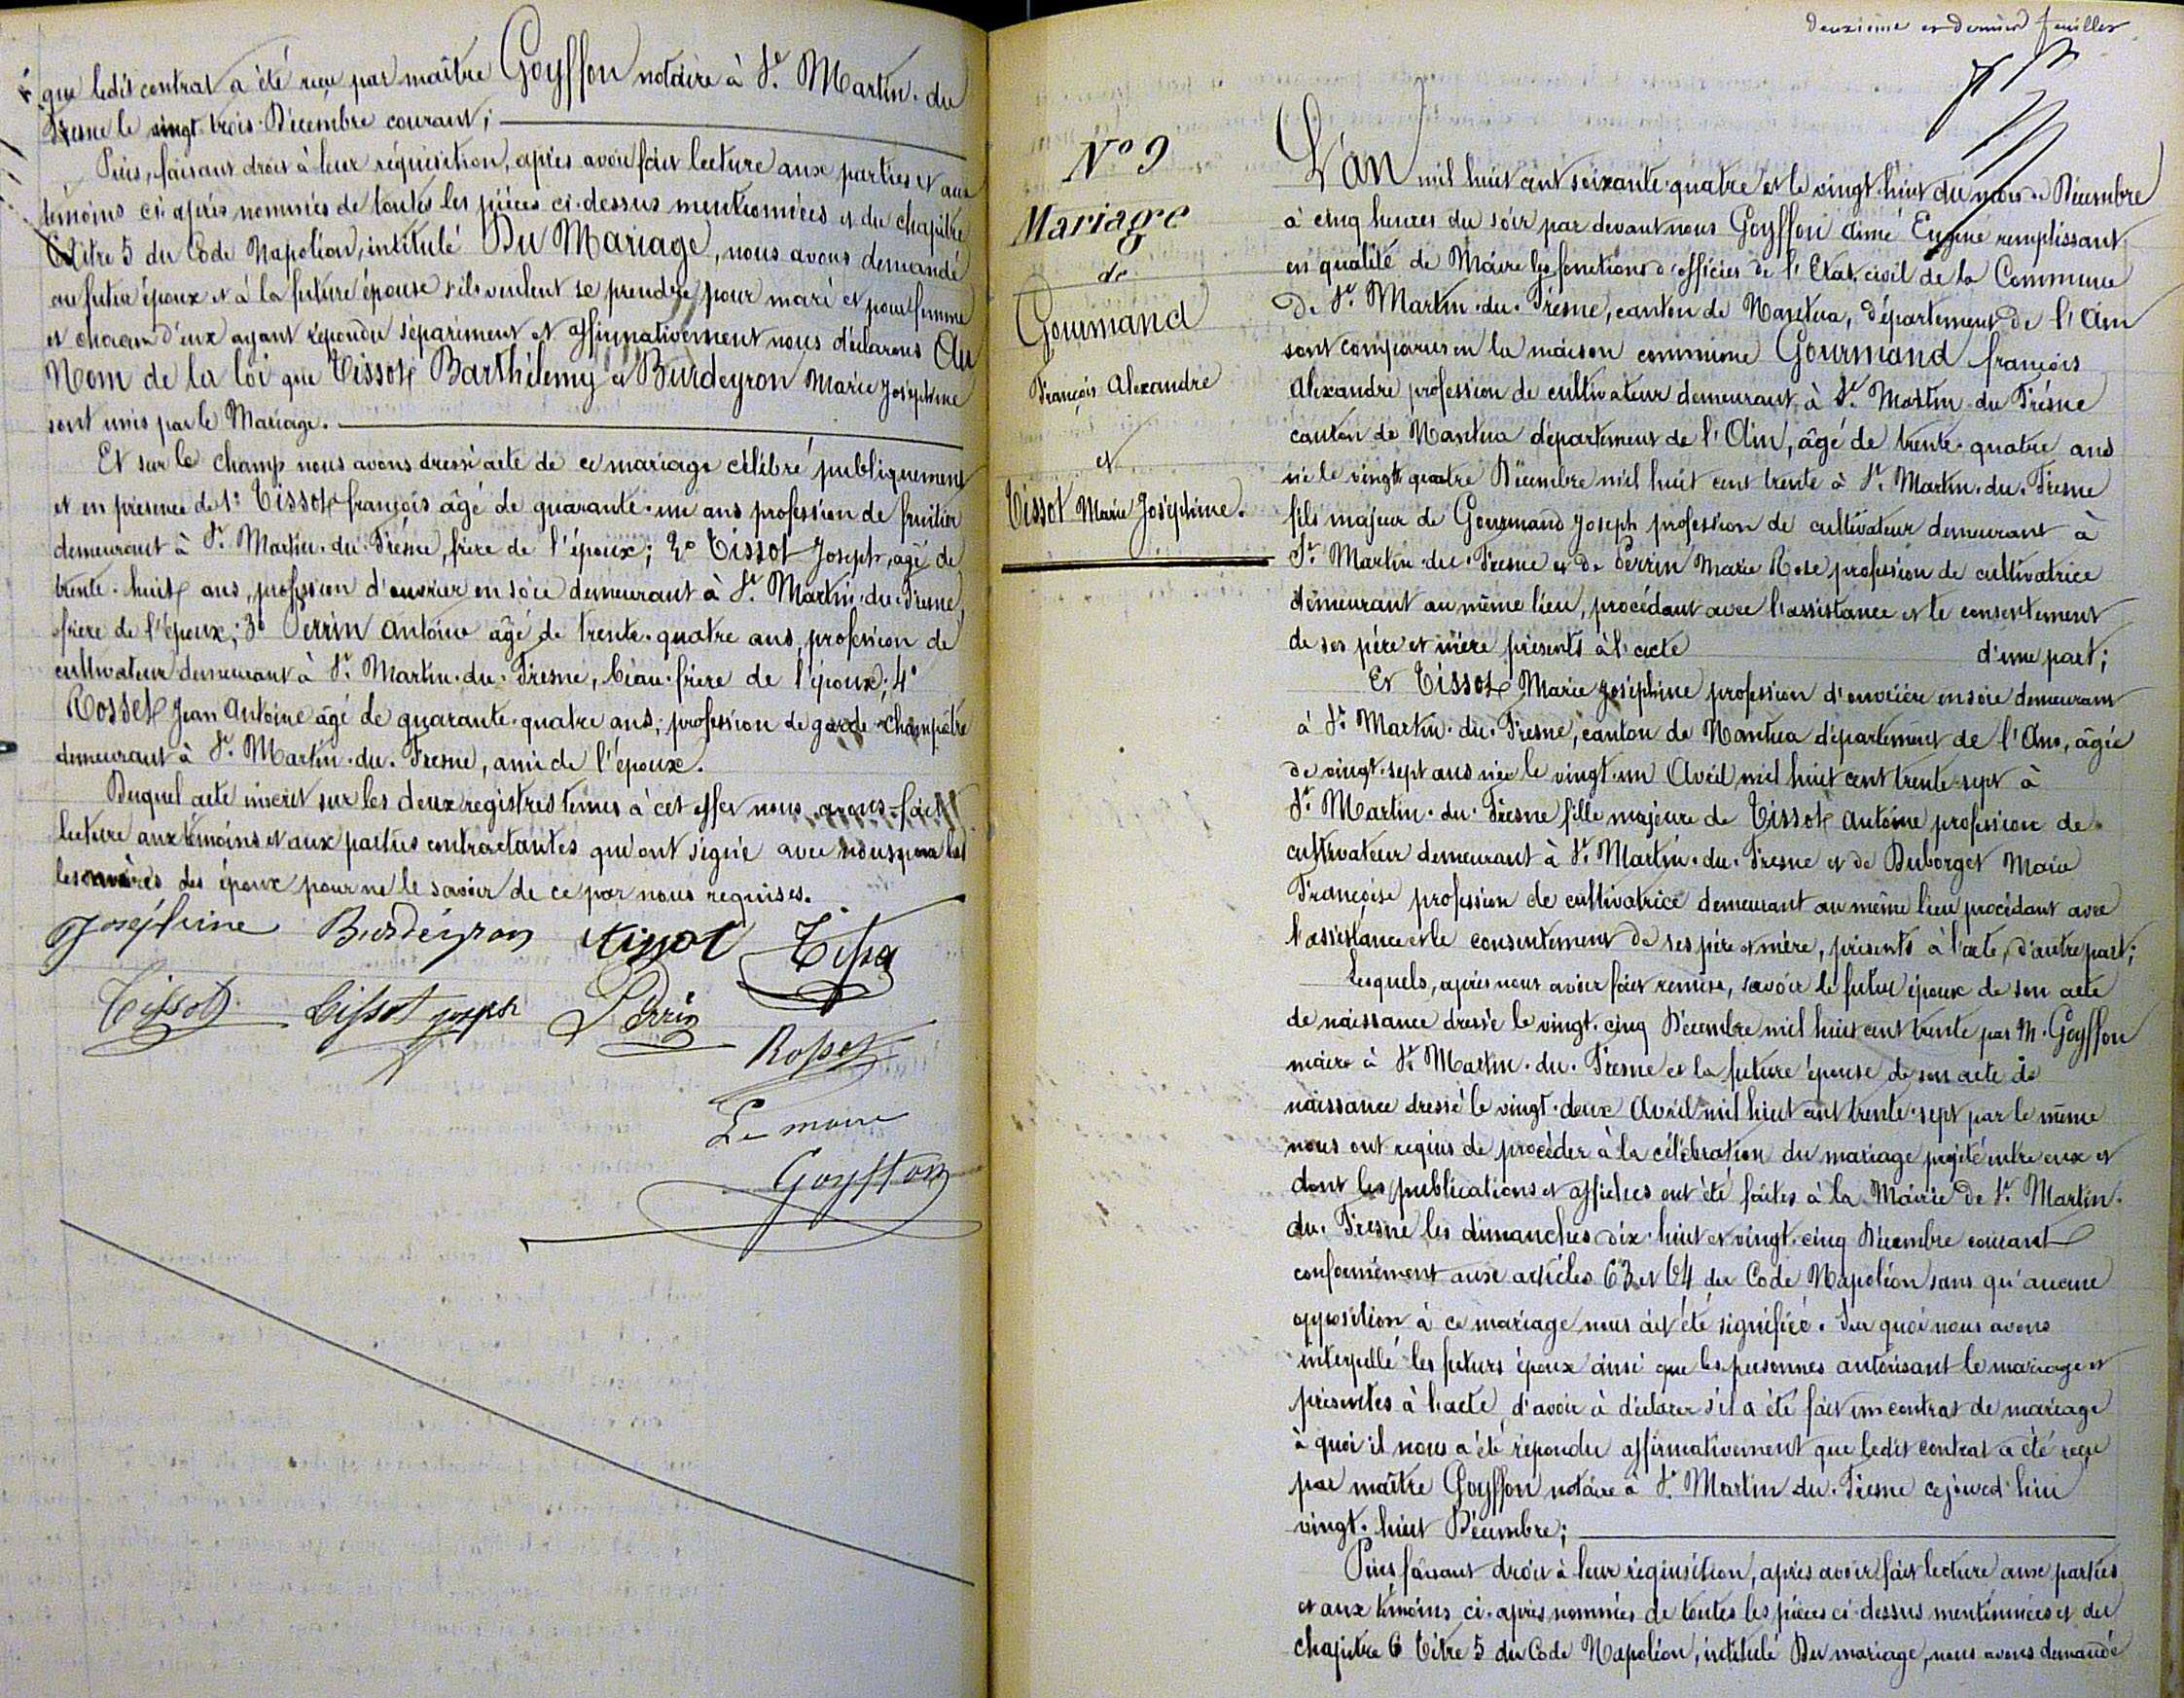 que ledit contrat a été reçu par maître Goyffon notaire à St. Martin. du
Fresne le vingt trois Décembre courant;
Puis, faisant droit à leur réquisition, après avoir fait lecture aux parties et aux
témoins ci après nommés de toutes les pièces ci-dessus mentionnées et du chapitre
titre 5 du Code Napoléon, intitulé Du Mariage, nous avons demandé
au futur époux et à la future épouse s'ils veulent se prendre pour mari et pour femme
et chacun d'eux ayant répondu séparément et affirmativement nous déclarons Au
Nom de la loi que Tissot Barthélemy et Burdeyron Marie Joséphine
sont unis par le Mariage.
Et sur le champ nous avons dressé acte de ce mariage célébré publiquement
et en présence de 1° Tissot françois âgé de quarante-un ans profession de fruitier
demeurant à St. Martin. du. Fresne, frère de l'époux; 2° Tissot Joseph, âgé de
trente-huit ans, profession d'ouvrier en soie demeurant à St. Martin. du. Fresne,
frère de l'époux; 3° Perrin Antoine âgé de trente-quatre ans, profession de
cultivateur demeurant à St. Martin. du. Fresne, beau-frère de l'époux; 4°
Rosset Jean Antoine âgé de quarante-quatre ans, profession de garde-champêtre
demeurant à St. Martin. du. Fresne, ami de l'époux.
Duquel acte inscrit sur les deux registres tenus à cet effet nous avons fait
lecture aux témoins et aux parties contractantes qui ont signé avec nous
les mères des époux pour ne le savoir de ce par nous requises.
Joséphine Burdeyron tissot Tissot
Tissot Tissot joseph Perrin
Rosset
Le maire
Goyffon
deuxième et dernier feuillet
N° 9
Mariage
de
Gourmand
François Alexandre
et
Tissot Marie Joséphine.
L'an mil huit cent soixante-quatre et le vingt-huit du mois de Décembre
à cinq heures du soir par devant nous Goyffon Aimé Eugène remplissant
en qualité de Maire les fonctions d'officier de l'Etat civil de la Commune
De St. Martin. du. Fresne, canton de Nantua, département de l'Ain
sont comparus en la maison commune Gourmand françois
Alexandre profession de cultivateur demeurant à St. Martin du Fresne
canton de Nantua département de l'Ain, âgé de trente-quatre ans
né le vingt quatre Décembre mil huit cent trente à St. Martin. du. Fresne
fils majeur de Gourmand Joseph profession de cultivateur demeurant à
St. Martin du. Fresne et de Perrin Marie Rose profession de cultivatrice
demeurant au même lieu, procédant avec l'assistance et le consentement
de ses père et mère présents à l'acte d'une part;
Et Tissot Marie Joséphine profession d'ouvrière en soie demeurant
à St. Martin. du. Fresne, canton de Nantua département de l'Ain, âgée
de vingt-sept ans née le vingt-un Avril mil huit cent trente-sept à
St. Martin. du. Fresne fille majeure de Tissot Antoine profession de
cultivateur demeurant à St. Martin. du. Fresne et de Duborget Marie
Françoise profession de cultivatrice demeurant au même lieu procédant avec
l'assistance et le consentement de ses père et mère, présents à l'acte, d'autre part;
Lesquels, après nous avoir fait remise, savoir le futur époux de son acte
de naissance dressé le vingt-cinq Décembre mil huit cent trente par M. Goyffon
maire à St. Martin. du. Fresne et la future épouse de son acte de
naissance dressé le vingt-deux Avril mil huit cent trente-sept par le même
nous ont requis de procéder à la célébration du mariage projeté entre eux et
dont les publications et affiches ont été faites à la Mairie de St. Martin.
du. Fresne les dimanches dix-huit et vingt-cinq Décembre courant
conformément aux articles 63 et 64 du Code Napoléon sans qu'aucune
opposition à ce mariage nous ait été signifiée. Sur quoi nous avons
interpellé les futurs époux ainsi que les personnes autorisant le mariage et
présentes à l'acte, d'avoir à déclarer s'il a été fait un contrat de mariage
à quoi il nous a été répondu affirmativement que ledit contrat a été reçu
par maître Goyffon notaire à St. Martin du. Fresne cejourd'hui
vingt-huit Décembre;
Puis faisant droit à leur réquisition, après avoir fait lecture aux parties
et aux témoins ci-après nommés de toutes les pièces ci-dessus mentionnées et du
chapitre 6 titre 5 du Code Napoléon, intitulé Du mariage, nous avons demandé